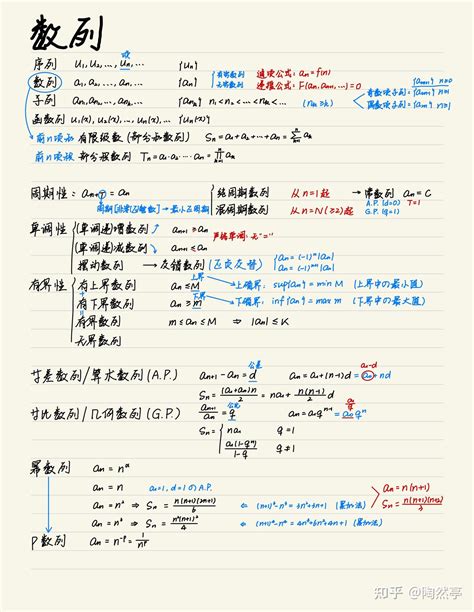 数列
序列 u₁, u₂, …, uₙ, … {uₙ}
项
数列 a₁, a₂, …, aₙ, … {aₙ} 有穷数列 无穷数列 通项公式: aₙ=f(n) 递推公式: F(aₙ, aₙ₊₁, …)=0
子列 {aₙₖ} n₁<n₂<…<nₖ<… (nₖ≥k) 奇数项子列 偶数项子列
函数列 u₁(x), u₂(x), …, uₙ(x), … {uₙ(x)}
前n项和 有限级数 (部分和数列) Sₙ=a₁+a₂+…+aₙ=
前n项积 部分积数列 Tₙ=a₁·a₂·…·aₙ=
周期性: aₙ₊T=aₙ 纯周期数列 从n=1起 → 常数列 aₙ=C
周期[非零正整数]→最小正周期 混周期数列 从n=N(≥2)起 A.P.(d=0) T=1
G.P.(q=1)
单调性 (单调)递增数列 aₙ₊₁≥aₙ 严格单调: 无"="
(单调)递减数列 aₙ₊₁≤aₙ
摆动数列 → 反错数列 aₙ=(-1)ⁿ|aₙ|
有界性 有上界数列 aₙ≤M 上界 → 上确界: sup{aₙ}=min M (上界中的最小值)
有下界数列 aₙ≥m 下界 → 下确界: inf{aₙ}=max m (下界中的最大值)
有界数列 m≤aₙ≤M ⇒ |aₙ|≤K
无界数列
等差数列/算术数列(A.P.) aₙ₊₁-aₙ=d 公差 aₙ=a₁+(n-1)d=a₀+nd a₁-d
Sₙ=(a₁+aₙ)n/2=na₁+n(n-1)/2 d
等比数列/几何数列(G.P.) aₙ₊₁/aₙ=q 公比 aₙ=a₁qⁿ⁻¹=a₀qⁿ
Sₙ= na₁ q=1
a₁(1-qⁿ)/1-q q≠1
幂数列 aₙ=nᵅ
aₙ=n a₁=1, d=1 の A.P. aₙ=n(n+1)
aₙ=n² ⇒ Sₙ=n(n+1)(2n+1)/6 ⇐ (n+1)³-n³=3n²+3n+1 (累加法) Sₙ=n(n+1)(n+2)/3
aₙ=n³ ⇒ Sₙ=n²(n+1)²/4 ⇐ (n+1)⁴-n⁴=4n³+6n²+4n+1 (累加法)
P数列 aₙ=n⁻ᵖ=1/nᵖ
知乎 @陶然亭